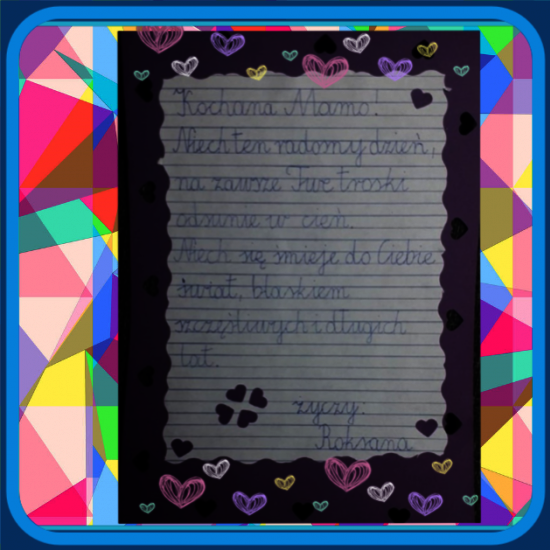 Kochana Mamo!
Niech ten radosny dzień,
na zawsze Twe troski
odsunie w cień.
Niech się śmieje do Ciebie
świat, blaskiem
szczęśliwych i długich
lat.
życzy:
Roksana